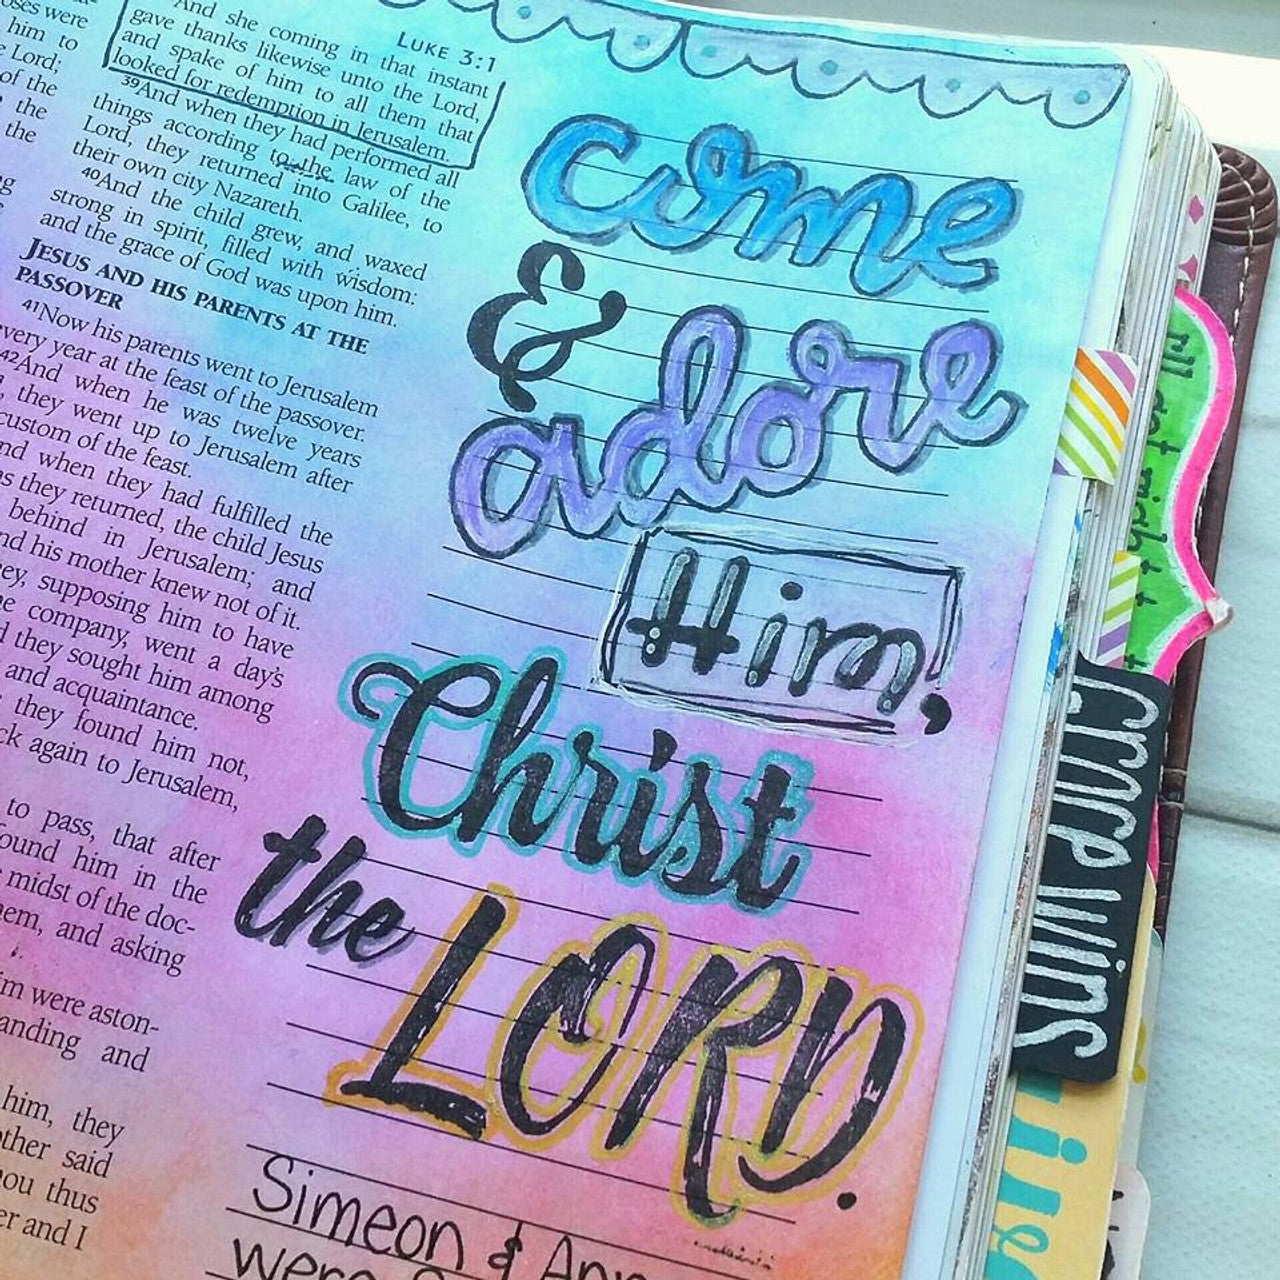 LUKE 3:1
oses were
him to
e Lord;
of the
the
the
And she coming in that instant
gave thanks likewise unto the Lord,
and spake of him to all them that
looked for redemption in Jerusalem.
39And when they had performed all
things according to the law of the
Lord, they returned into Galilee, to
their own city Nazareth.
40And the child grew, and waxed
strong in spirit, filled with wisdom:
and the grace of God was upon him.
JESUS AND HIS PARENTS AT THE
PASSOVER
41Now his parents went to Jerusalem
every year at the feast of the passover.
42And when he was twelve years
, they went up to Jerusalem after
custom of the feast.
nd when they had fulfilled the
as they returned, the child Jesus
behind in Jerusalem; and
nd his mother knew not of it.
ey, supposing him to have
e company, went a day's
d they sought him among
and acquaintance.
they found him not,
ck again to Jerusalem,
to pass, that after
ound him in the
midst of the doc-
hem, and asking
im were aston-
anding and
him, they
other said
ou thus
er and I
come
&
adore
Him,
Christ
the LORD.
Simeon & Ann
were
grace wins